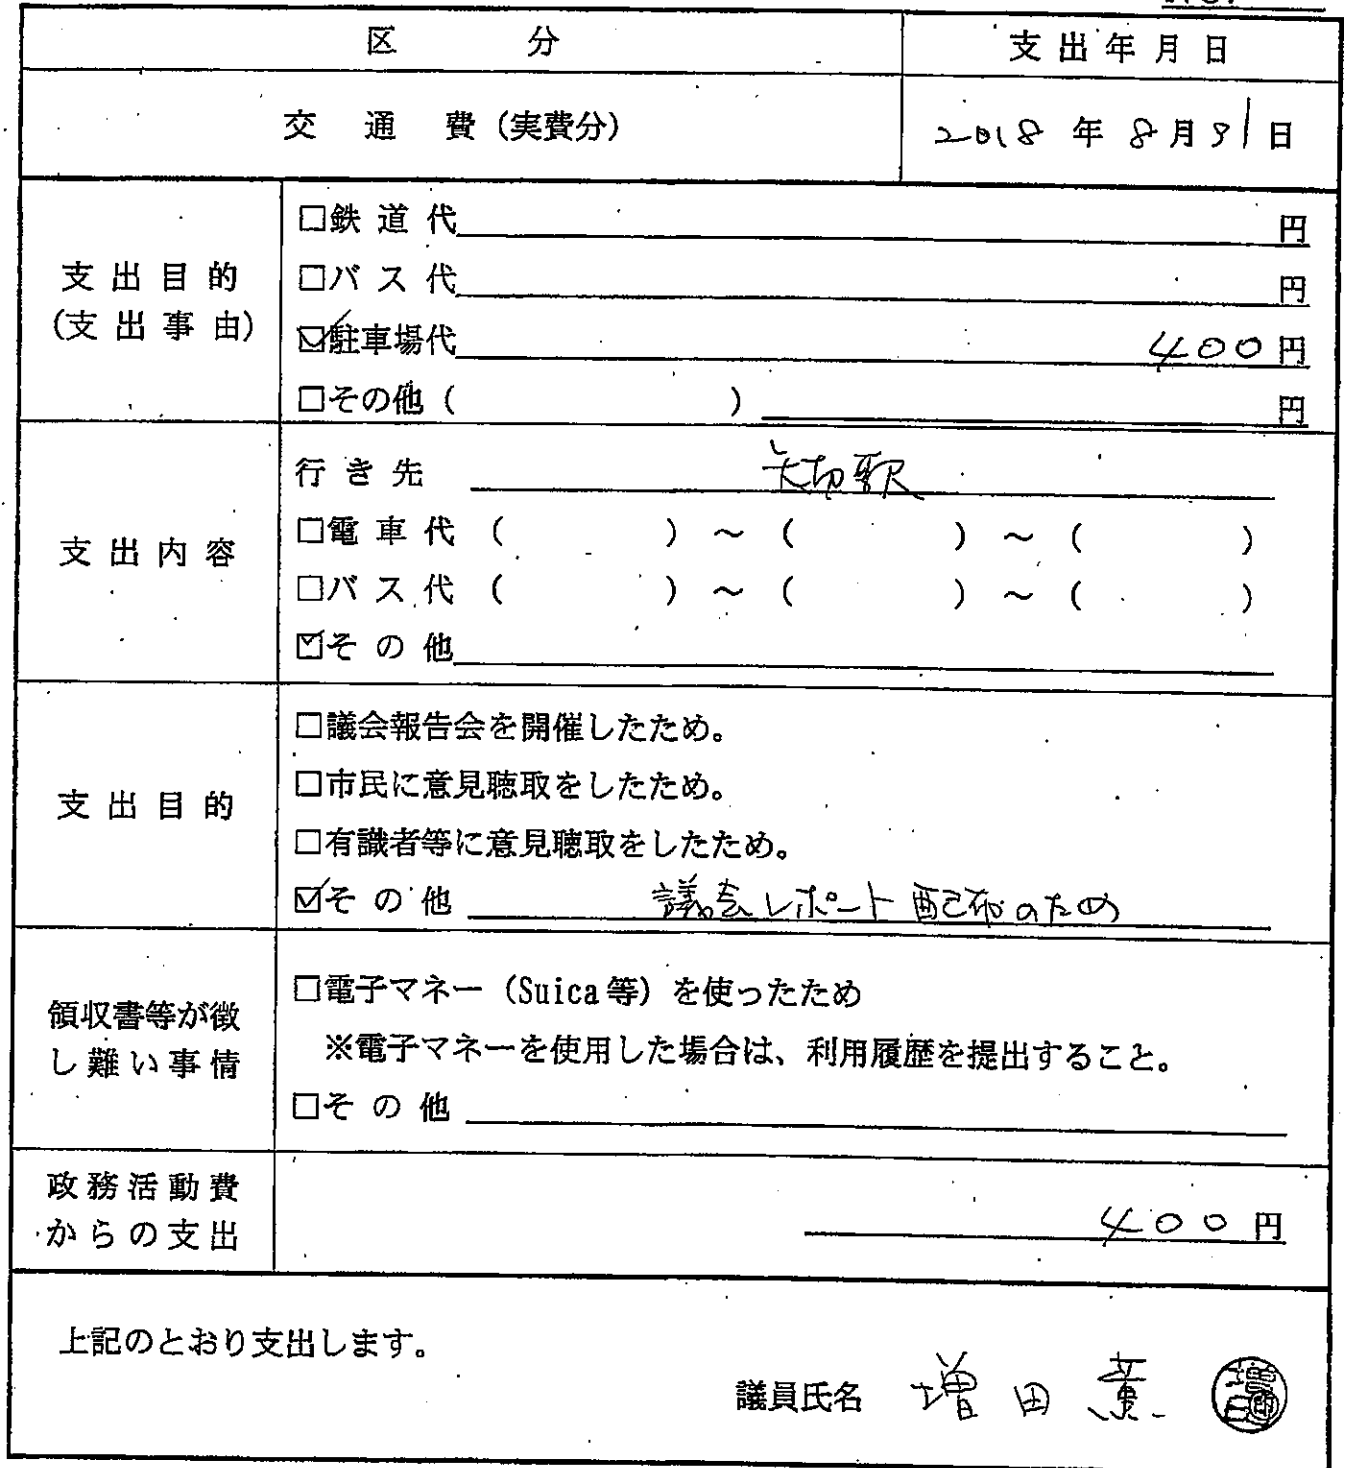 区 分 支出年月日
交 通 費（実費分） 2018 年 8 月 31 日
支出目的
（支出事由）
□鉄道代 円
□バス代 円
☑駐車場代 400円
□その他（ ） 円
支出内容
行き先 矢切駅
□電車代（ ）～（ ）～（ ）
□バス代（ ）～（ ）～（ ）
☑その他
支出目的
□議会報告会を開催したため。
□市民に意見聴取をしたため。
□有識者等に意見聴取をしたため。
☑その他 議会レポート配布のため
領収書等が徴
し難い事情
□電子マネー（Suica等）を使ったため
※電子マネーを使用した場合は、利用履歴を提出すること。
□その他
政務活動費
からの支出
400円
上記のとおり支出します。
議員氏名 増田 薫